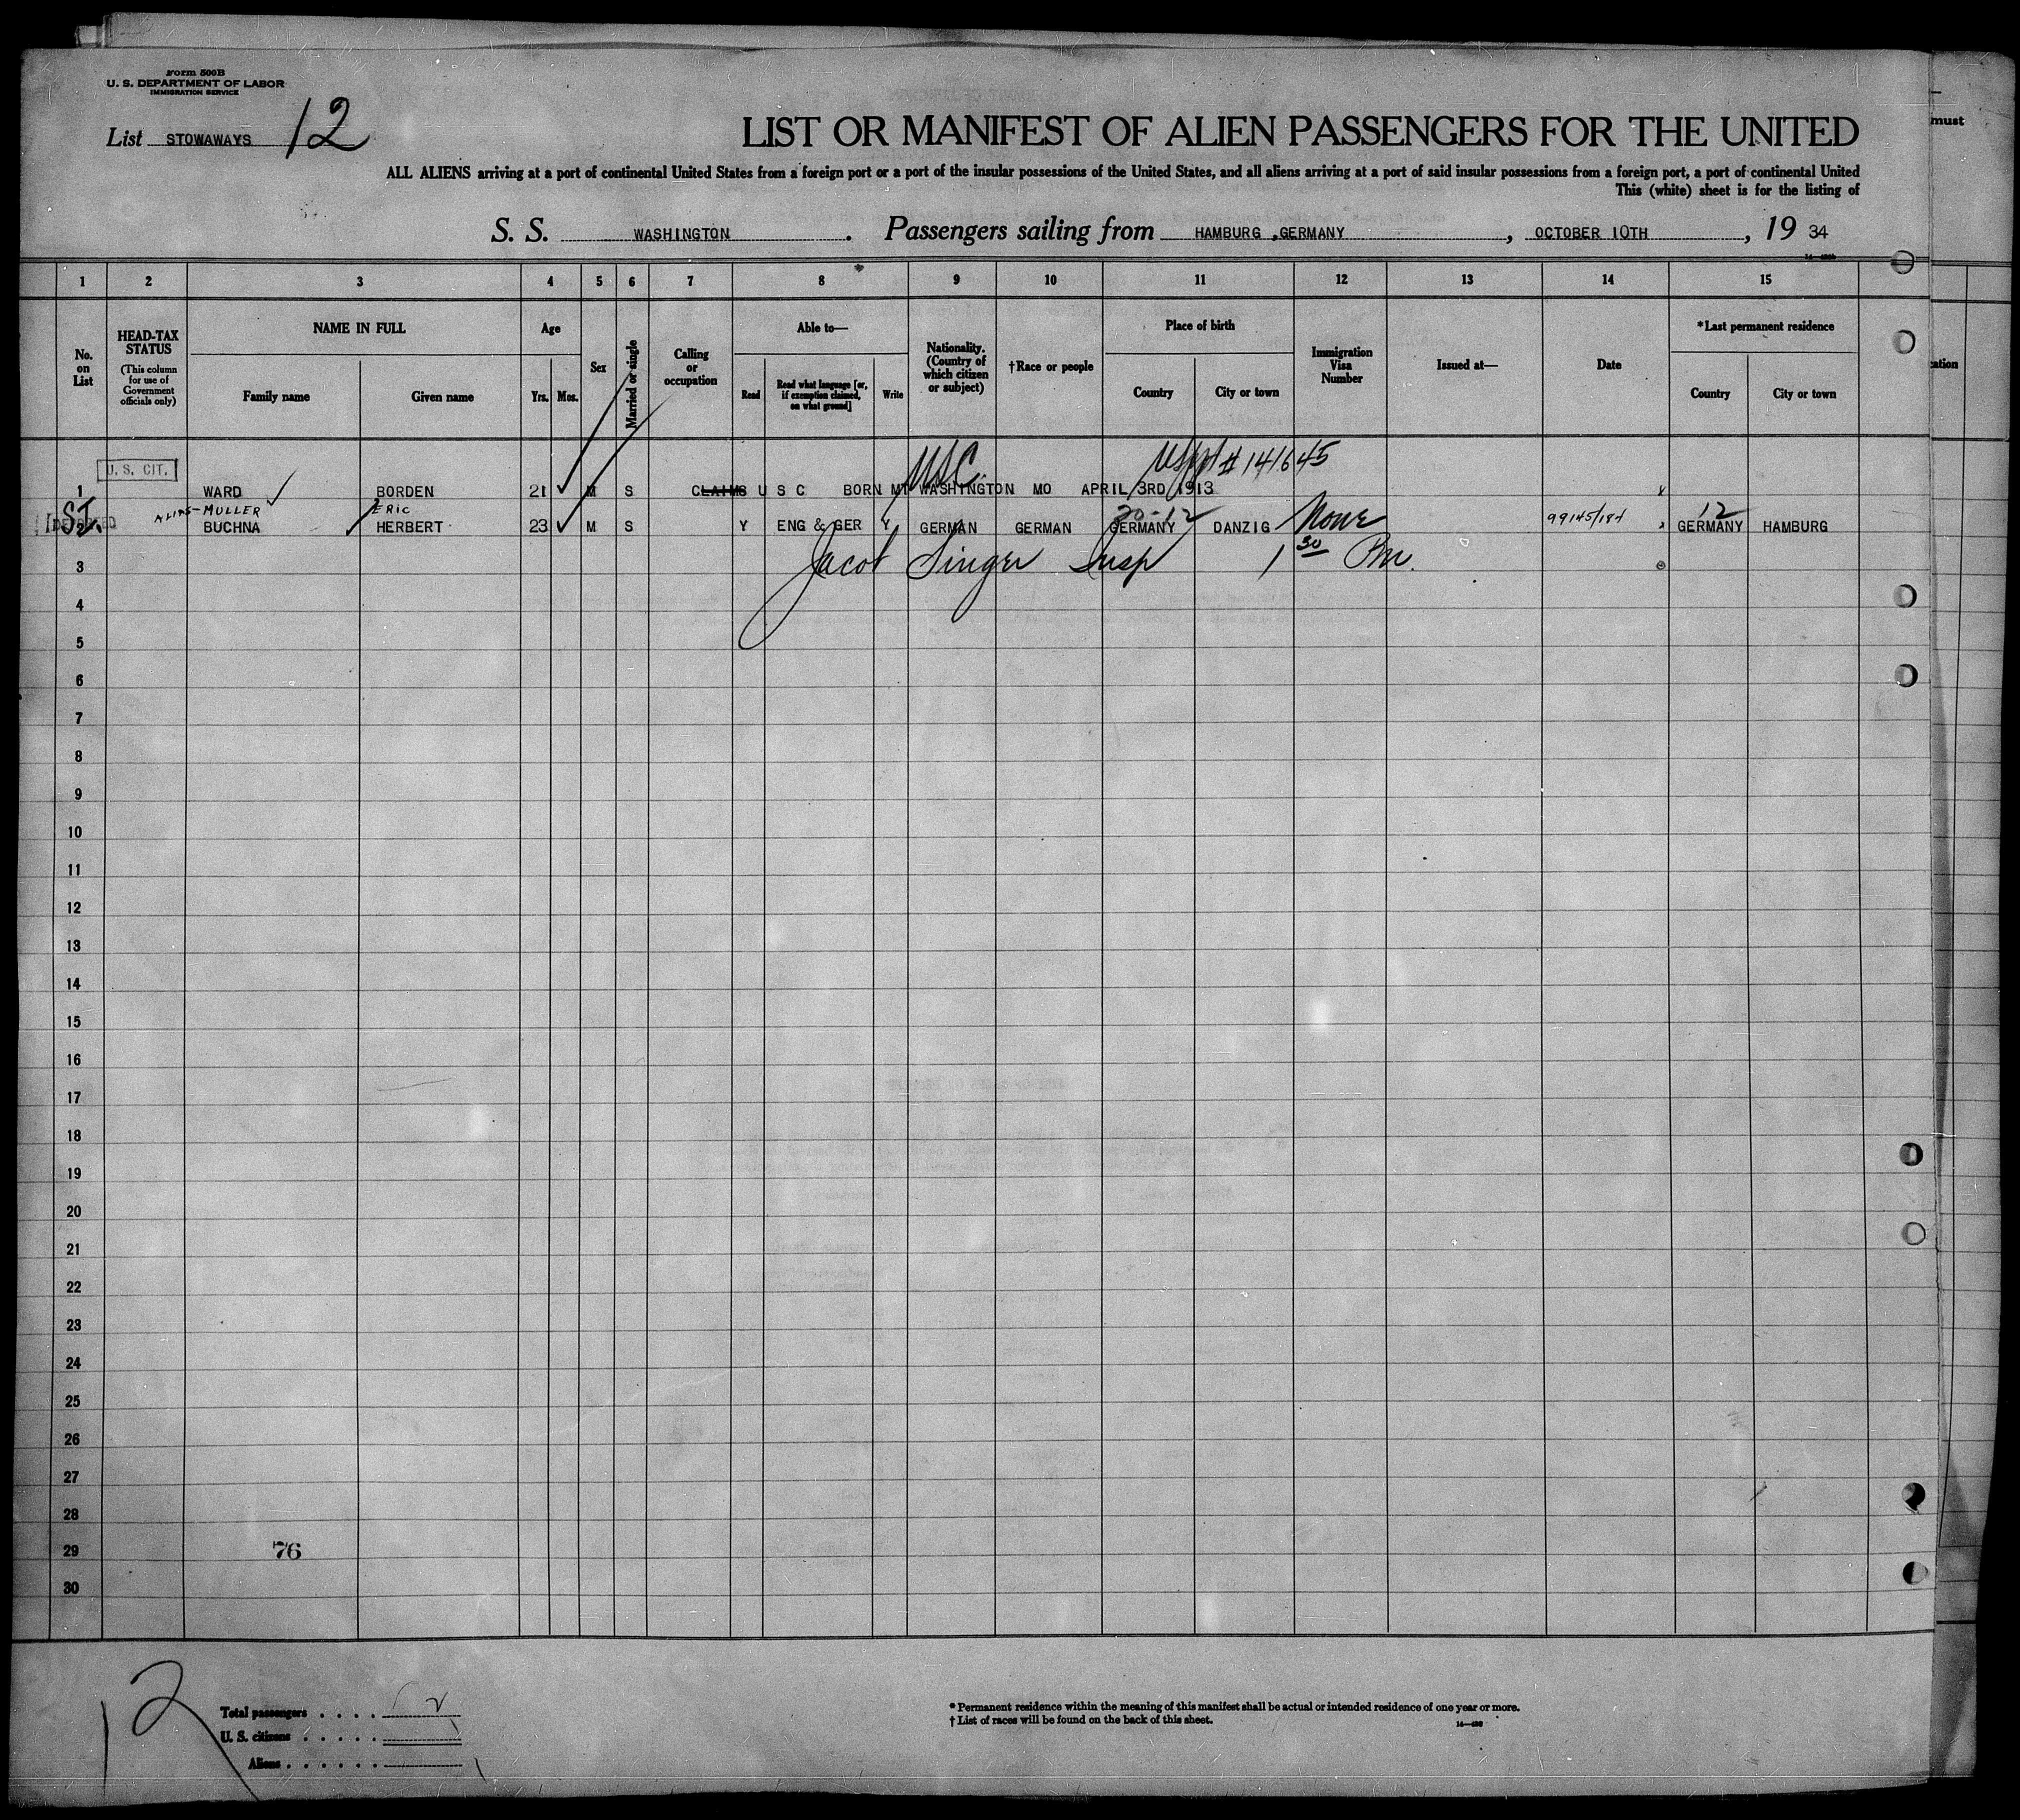 Form 500B
U. S. DEPARTMENT OF LABOR
IMMIGRATION SERVICE
List STOWAWAYS 12
LIST OR MANIFEST OF ALIEN PASSENGERS FOR THE UNITED
must
ALL ALIENS arriving at a port of continental United States from a foreign port or a port of the insular possessions of the United States, and all aliens arriving at a port of said insular possessions from a foreign port, a port of continental United
This (white) sheet is for the listing of
S. S. WASHINGTON. Passengers sailing from HAMBURG ,GERMANY, OCTOBER 10TH, 19 34
1 2 3 4 5 6 7 8 9 10 11 12 13 14 15
No. on List
HEAD-TAX STATUS
(This column for use of Government officials only)
NAME IN FULL
Family name
Given name
Age
Yrs. Mos.
Sex
Married or single
Calling or occupation
Able to—
Read
Read what language [or, if exemption claimed, on what ground]
Write
Nationality. (Country of which citizen or subject)
†Race or people
Place of birth
Country
City or town
Immigration Visa Number
Issued at—
Date
*Last permanent residence
Country
City or town
U. S. CIT.
USC. # 141645
1 WARD BORDEN 21 M S CLAIMS U S C BORN MT WASHINGTON MO APRIL 3RD 1913
ALIAS-MULLER ERIC 20-12 12
2 BUCHNA HERBERT 23 M S Y ENG & GER Y GERMAN GERMAN GERMANY DANZIG None GERMANY HAMBURG
3 Jacob Singer Insp 1 30 Pm.
4
5
6
7
8
9
10
11
12
13
14
15
16
17
18
19
20
21
22
23
24
25
26
27
28
29 76
30
12
Total passengers . . . . 2
U. S. citizens . . . . . 1
Aliens . . . . . . 1
* Permanent residence within the meaning of this manifest shall be actual or intended residence of one year or more.
† List of races will be found on the back of this sheet.